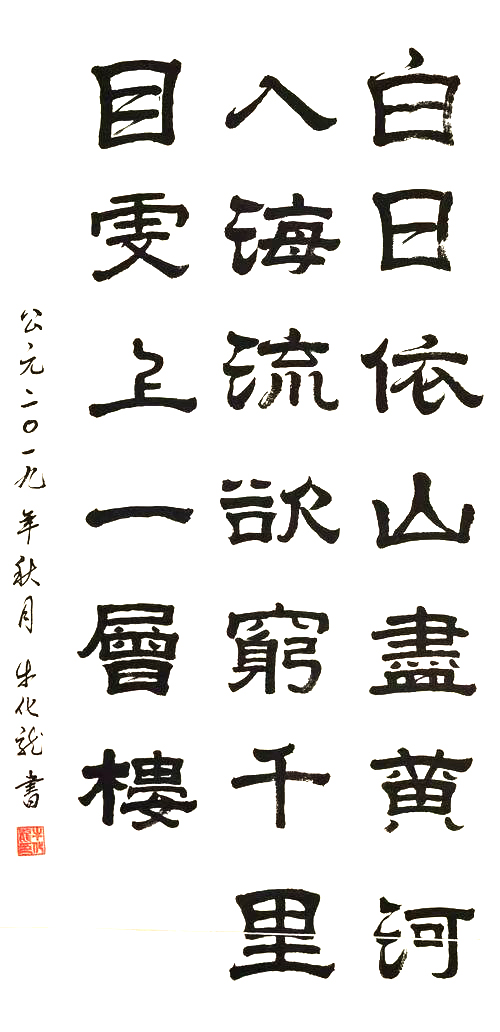 白日依山盡黃河
入海流欲窮千里
目更上一層樓
公元二〇一九年秋月 牛化龍書